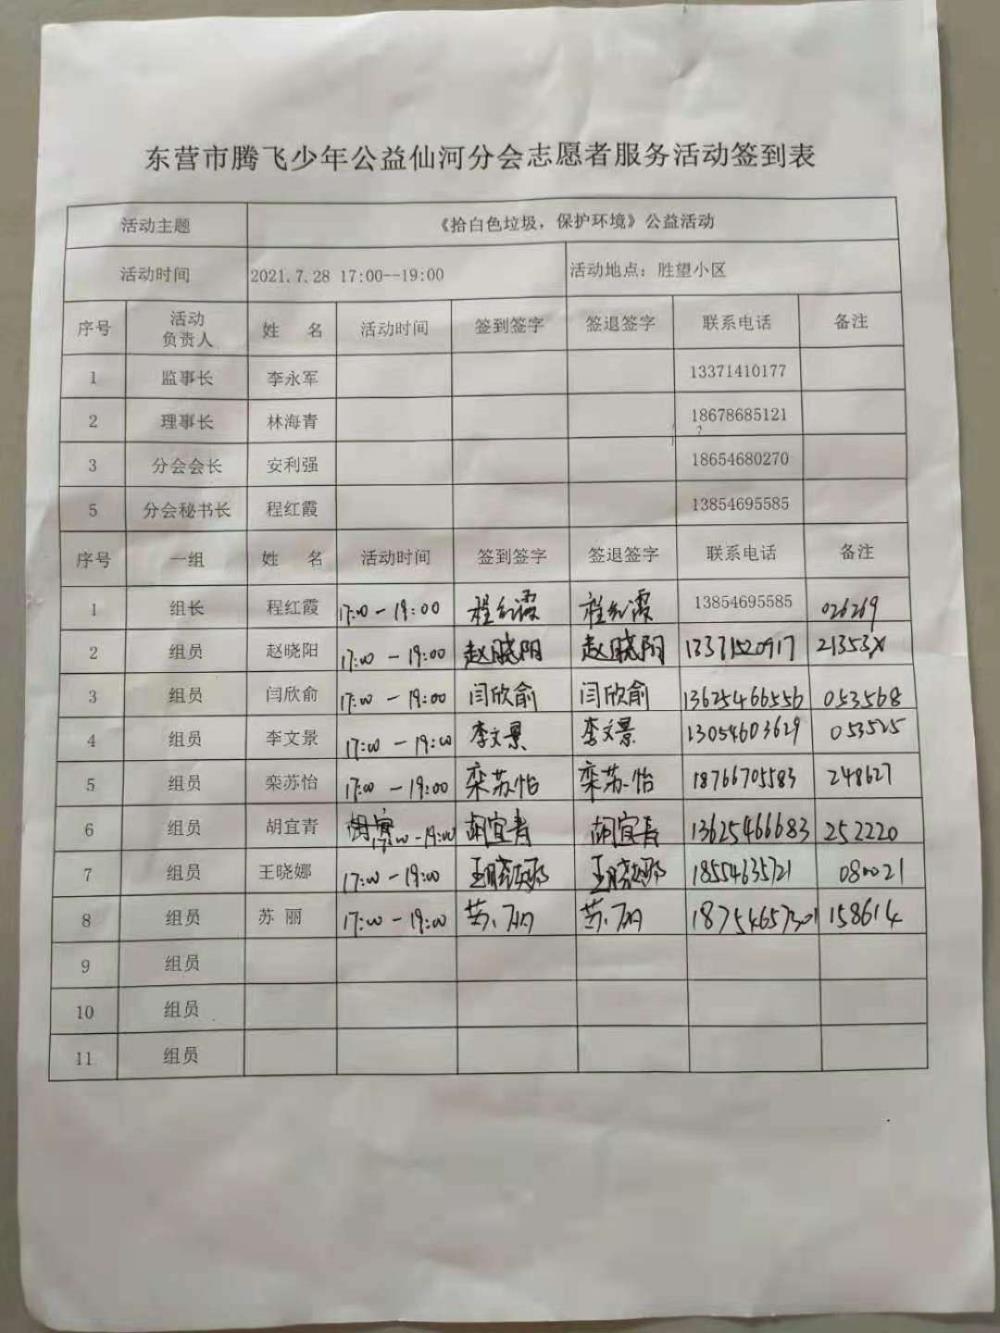 东营市腾飞少年公益仙河分会志愿者服务活动签到表
活动主题 《拾白色垃圾，保护环境》公益活动
活动时间 2021.7.28 17:00--19:00 活动地点：胜望小区
序号 活动负责人 姓 名 活动时间 签到签字 签退签字 联系电话 备注
1 监事长 李永军 13371410177
2 理事长 林海青 18678685121
3 分会会长 安利强 18654680270
5 分会秘书长 程红霞 13854695585
序号 一组 姓 名 活动时间 签到签字 签退签字 联系电话 备注
1 组长 程红霞 17:00-19:00 程红霞 程红霞 13854695585 026269
2 组员 赵晓阳 17:00-19:00 赵晓阳 赵晓阳 13371520917 21353X
3 组员 闫欣俞 17:00-19:00 闫欣俞 闫欣俞 13625466556 053568
4 组员 李文景 17:00-19:00 李文景 李文景 13054603629 053525
5 组员 栾苏怡 17:00-19:00 栾苏怡 栾苏怡 18766705583 248627
6 组员 胡宜青 17:00-19:00 胡宜青 胡宜青 13625466683 252220
7 组员 王晓娜 17:00-19:00 王晓娜 王晓娜 18554635721 080021
8 组员 苏 丽 17:00-19:00 苏丽 苏丽 18754657301 158614
9 组员
10 组员
11 组员